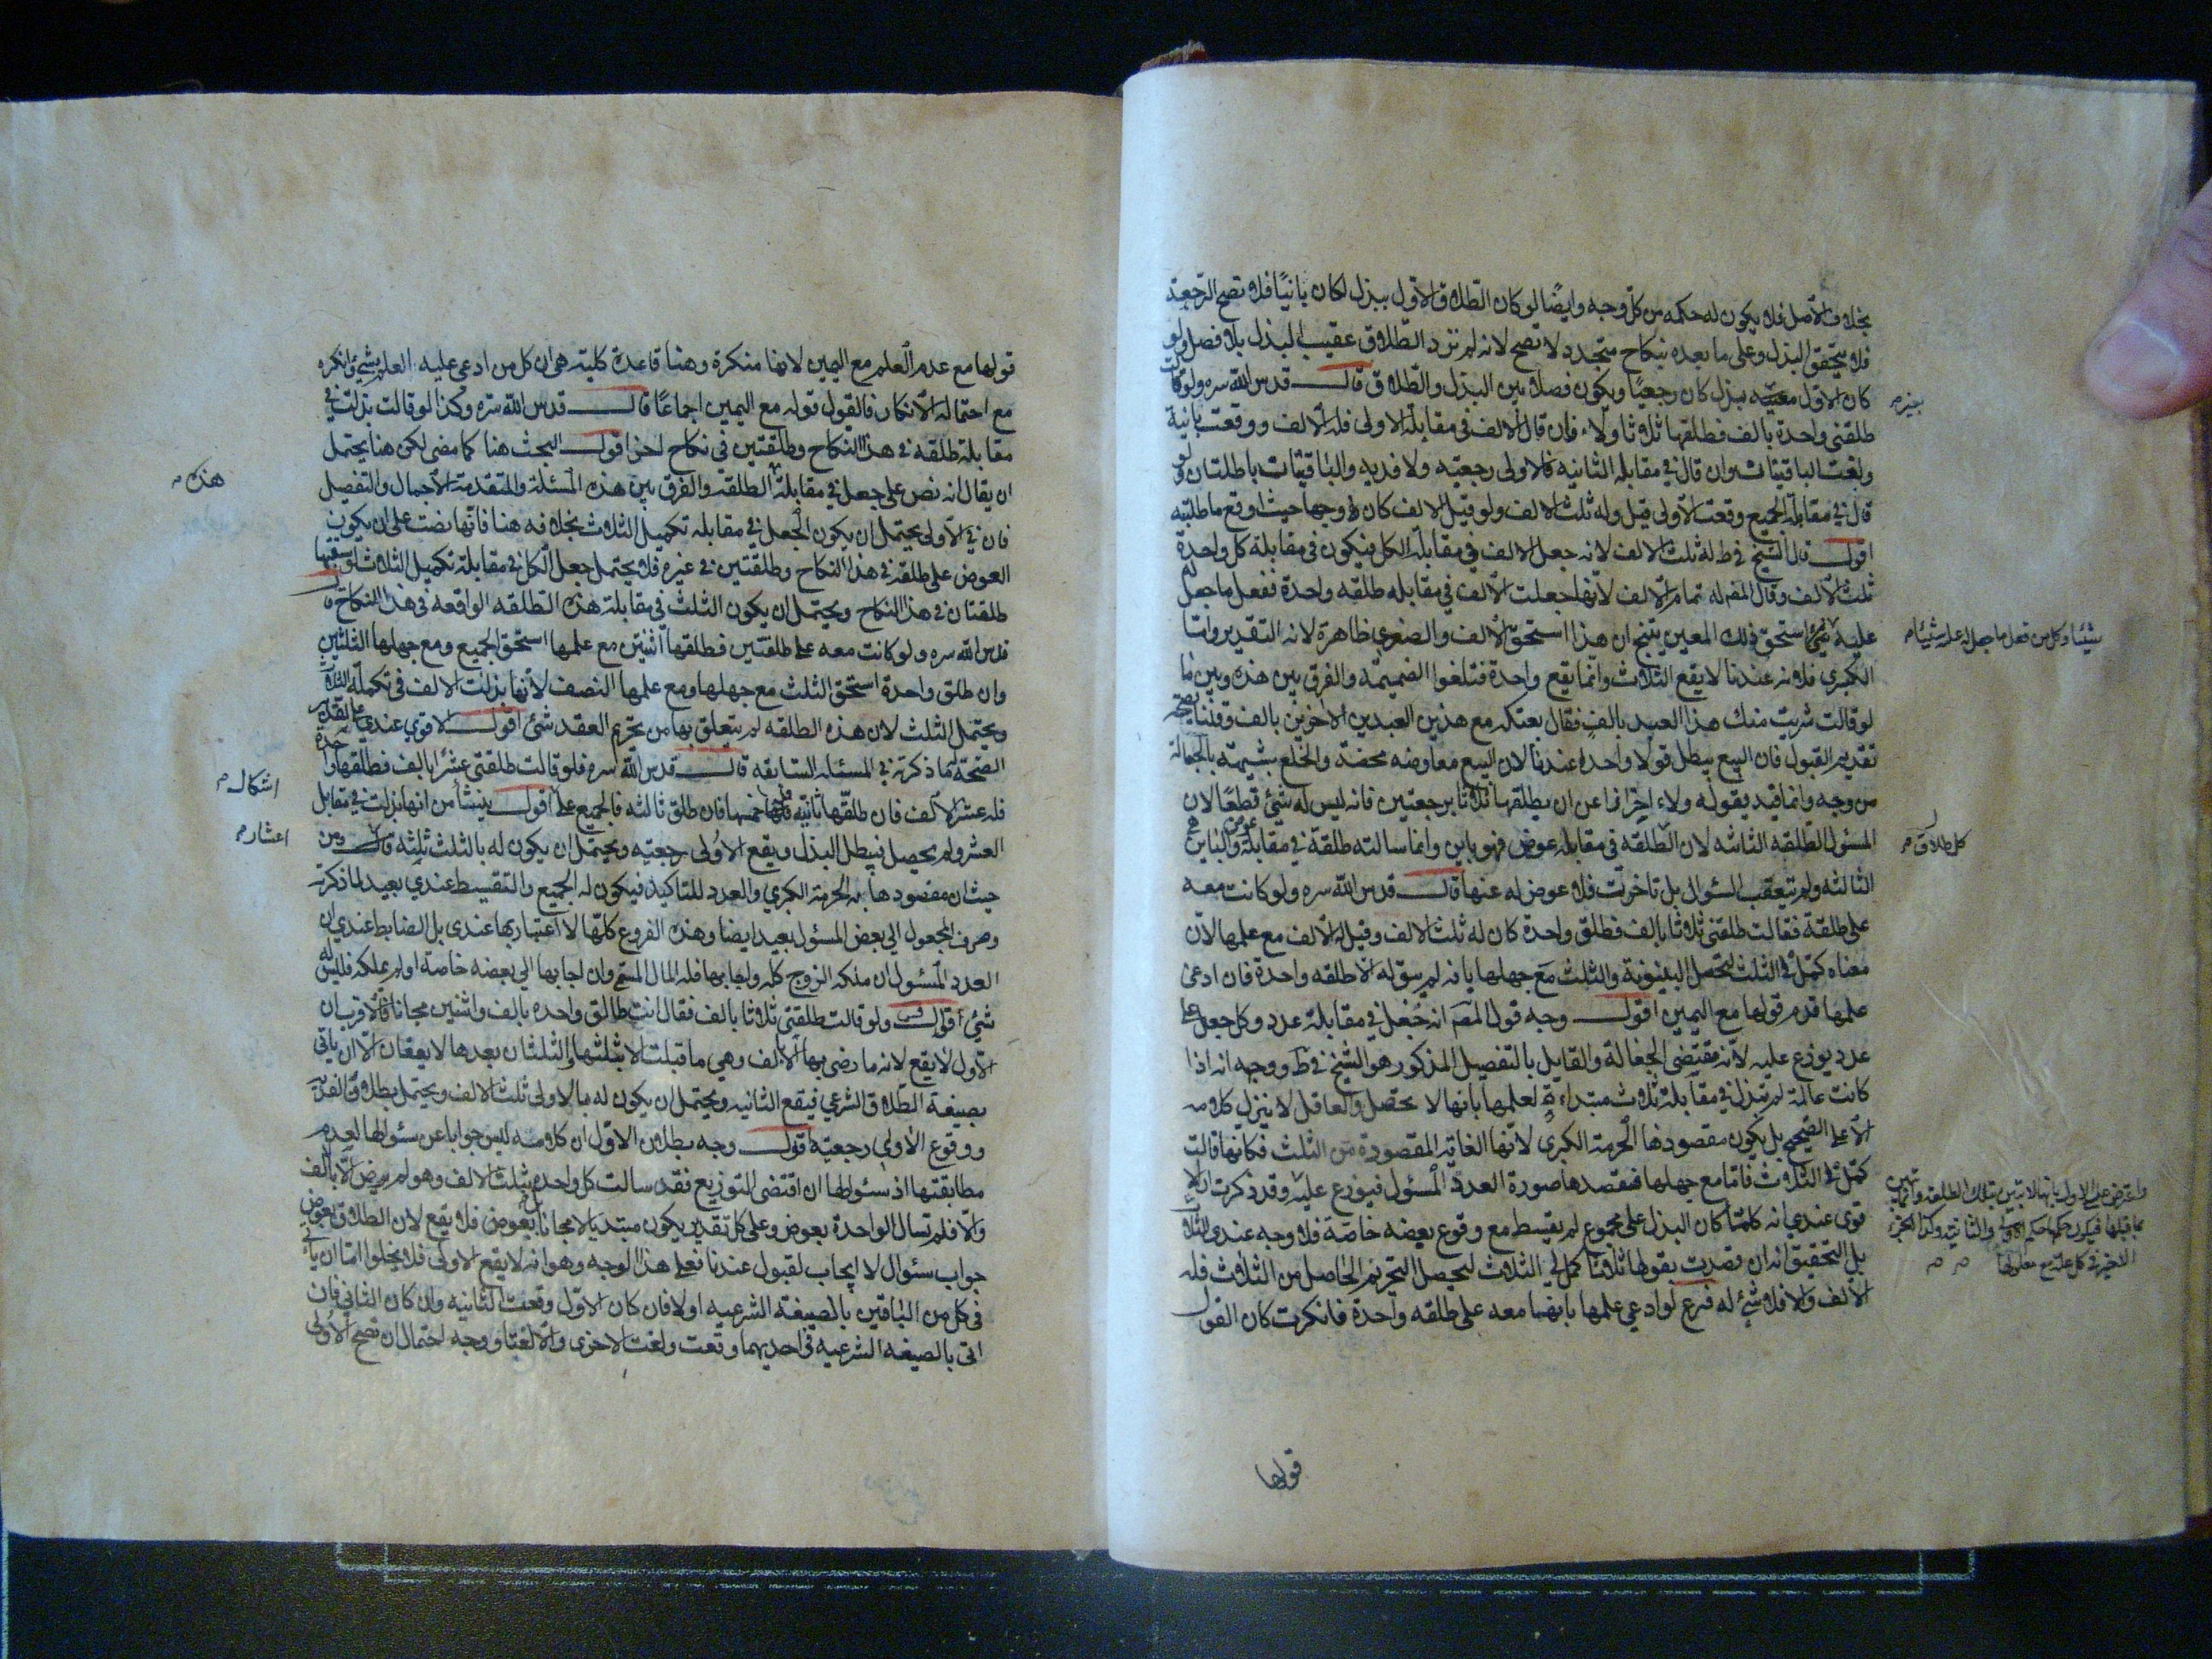 بخلاف الاصل فلا يكون له حكمه من كل وجه وايضًا لو كان الطلاق الاول ببذل لكان باينًا فلا تصح الرجعة
فلا يتحقق البذل وعلى ما بعده بنكاح متجدد لا تصح لانه لم يرد الطلاق عقيب البذل بلا فصل ولو
كان الاول ببذل كان رجعيًا ويكون فصلا بين البذل والطلاق قال قدس الله سره ولو قالت
طلقني واحدة بالف فطلقها ثلاثا ولاء فان قال الالف في مقابلة الاولى فله الالف ووقعت بائنة
ولغت الباقيتان وان قال في مقابلة الثانيه فالاولى رجعيه ولا فديه والباقيتان باطلتان ولو
قال في مقابلة الجميع وقعت الاولى قيل وله ثلث الالف ولو قيل الالف كان وجها حيث اوقع ما طلبته
اقول قال الشيخ في ط له ثلث الالف لانه جعل الالف في مقابلة الكل فيكون في مقابلة كل واحدة
ثلث الالف وقال المص له تمام الالف لانها جعلت الالف في مقابله طلقه واحدة ففعل ما جعل
عليه استحق ذلك المعين ينتج ان هذا استحق الالف والصغرى ظاهرة لانه التقدير واما
الكبرى فلانه عندنا لا يقع الثلاث وانما يقع واحدة فتلغوا الضميمة والفرق بين هذه وبين ما
لو قالت شريت منك هذا العبد بالف فقال بعتكه مع هذين العبدين الاخرين بالف وقلنا بصحة
تقديم القبول فان البيع يبطل قولا واحدا عندنا لان البيع معاوضه محضة والخلع شبيهة بالجعالة
من وجه وانما قيد بقوله ولاء احترازا عن ان يطلقها ثلاثا برجعتين فانه ليس له شئ قطعًا لان
المسئول الطلقه الثالثه لان الطلقه في مقابله عوض فهو باين وانما سالته طلقة في مقابلة عوض والباين هي
الثالثه ولم يتعقب السئوال بل تاخرت فلا عوض له عنها قال قدس الله سره ولو كانت معه
على طلقة فقالت طلقني ثلاثا بالف فطلق واحدة كان له ثلث الالف وقيل له الالف مع علمها لان
معناه كمل لي الثلث لتحصل البينونة والثلث مع جهلها بانه لم يبق له الا طلقه واحدة فان ادعى
علمها قدم قولها مع اليمين اقول وجه قول المص انه جعل في مقابلة عدد وكل جعل على
عدد يوزع عليه لانه مقتضى الجعالة والقايل بالتفصيل المذكور هو الشيخ في ط ووجهه انه اذا
كانت عالمة لم تبذل في مقابلة ثلاث مبتداءة لعلمها بانها لا تحصل والعاقل لا ينزل كلامه
الا على الصحيح بل يكون مقصودها الحرمة الكبرى لانها الغاية المقصودة من الثلث فكانها قالت
كمل لي الثلاث فاما مع جهلها فقصدها صورة العدد المسئول فيوزع عليه وقد ذكرت ان الا
قوى عندي انه كلما كان البذل على مجموع لم يقسط مع وقوع بعضه خاصة فلا وجه عندي للثلاث
بل التحقيق انه ان قصدت بقولها ثلاثا كمل لي الثلاث ليحصل التحريم الحاصل من الثلاث فله
الالف والا فلا شئ له فرع لو ادعى علمها بانها معه على طلقه واحدة فانكرت كان القول
قولها
بغير
شيئا وكل من فعل ما جعل له عليه شيئا
كل طلاق
قولها مع عدم العلم مع اليمين لانها منكرة وهنا قاعدة كلية هي ان كل من ادعى عليه العلم بشئ وانكره
مع احتماله الانكار فالقول قوله مع اليمين اجماعًا قال قدس الله سره وكذا لو قالت بذلت في
مقابلة طلقه في هذا النكاح وطلقتين في نكاح اخر اقول البحث هنا كما مضى لكن هنا يحتمل
ان يقال انه نص على جعل في مقابلة الطلقه والفرق بين هذه المسئلة والمتقدمة الاجمال والتفصيل
فان في الاولى يحتمل ان يكون الجعل في مقابله تكميل الثلاث بخلافه هنا فانها نصت على ان يكون
العوض على طلقه في هذا النكاح وطلقتين في غيره فلا يحتمل جعل الكل في مقابلة تكميل الثلاث لو سبقها
طلقتان في هذا النكاح ويحتمل ان يكون الثلث في مقابلة هذه الطلقه الواقعه في هذا النكاح قال
قدس الله سره ولو كانت معه على طلقتين فطلقها اثنتين مع علمها استحق الجميع ومع جهلها الثلثين
وان طلق واحدة استحق الثلث مع جهلها ومع علمها النصف لانها بذلت الالف في تكملة الثلاث
ويحتمل الثلث لان هذه الطلقه لم يتعلق بها من تحريم العقد شئ اقول الاقوى عندي على تقدير
الصحة ما ذكرته في المسئله السابقه قال قدس الله سره فلو قالت طلقني عشرًا بالف فطلقها واحدة
فله عشر الالف فان طلقها ثانية فله خمسها فان طلق ثالثه فالجميع على اقول ينشأ من انها بذلت في مقابل
العشر ولم يحصل فيبطل البذل ويقع الاولى رجعيه ويحتمل ان يكون له بالثلث ثلثه ومن
حيث ان مقصودها به الحرمة الكبرى والعدد للتاكيد فيكون له الجميع والتقسيط عندي بعيد لما ذكرته
وصرف المجعول الى بعض المسئول بعيد ايضا وهذه الفروع كلها لا اعتبار بها عندى بل الضابط عندي ان
العدد المسئول ان ملكه الزوج كله واجابها فله المال المسمى وان اجابها الى بعضه خاصة او لم يملكه فليس له
شئ ولو قالت طلقني ثلاثا بالف فقال انت طالق واحده بالف واثنتين مجانا فالاقرب ان
الاول لا يقع لانه ما رضى بها الا بالف وهي ما قبلت الا بثلثها والثلثان بعدها لا يقعان الا ان ياتى
بصيغة الطلاق الشرعي فيقع الثانيه ويحتمل ان يكون له بالاولى ثلث الالف ويحتمل بطلان الفدية
ووقوع الاولى رجعيه اقول وجه بطلان الاول ان كلامه ليس جوابا عن سئوالها لعدم
مطابقتها اذ سئوالها ان اقتضى التوزيع فقد سالت كل واحده بثلث الالف وهو لم يرض الا بالف
والا فلم تسال الواحدة بعوض وعلى كل تقدير يكون مبتديا لا مجانا بل بعوض فلا يقع لان الطلاق بعوض
جواب سئوال لا ايجاب لقبول عندنا فعلى هذا الوجه وهو انه لا يقع الاولى فلا يخلوا اما ان ياتي
في كل من الباقين بالصيغة الشرعيه او لا فان كان الاول وقعت الثانيه وان كان الثاني فان
اتى بالصيغه الشرعيه في احديهما وقعت ولغت الاخرى والا لغتا ووجه احتمال ان تصح الاولى
هذه
اشكال
اعشار